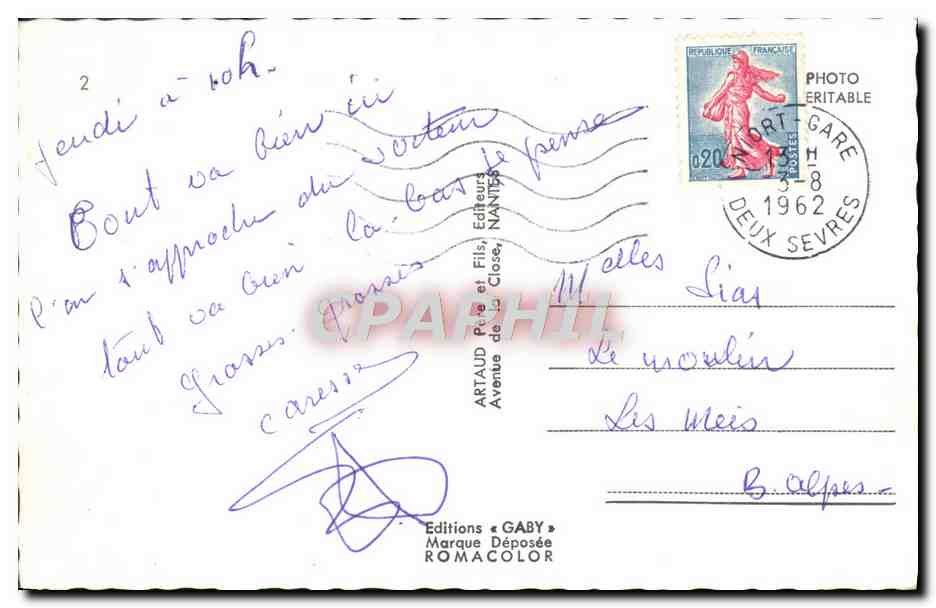 2
jeudi à 10h.
Tout va bien ici
l'on s'approche du secteur
tout va bien là-bas je pense
grosses grosses
caresses
REPUBLIQUE FRANÇAISE
0,20
POSTES
PHOTO
ERITABLE
NIORT-GARE
13 H
3-8
1962
DEUX SEVRES
ARTAUD Père et Fils, Editeurs
Avenue de la Close, NANTES
CPAPHIL
Melles Lias
Le moulin
Les Meis
B. alpes-
Editions « GABY »
Marque Déposée
ROMACOLOR